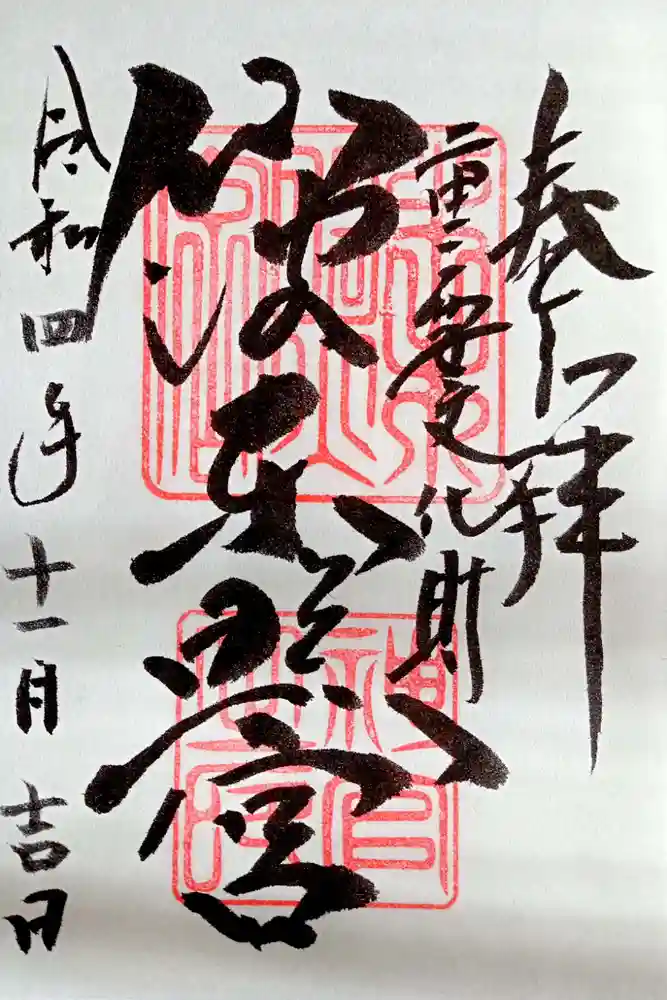 奉拝
重要文化財
仙波東照宮
令和四年十一月吉日